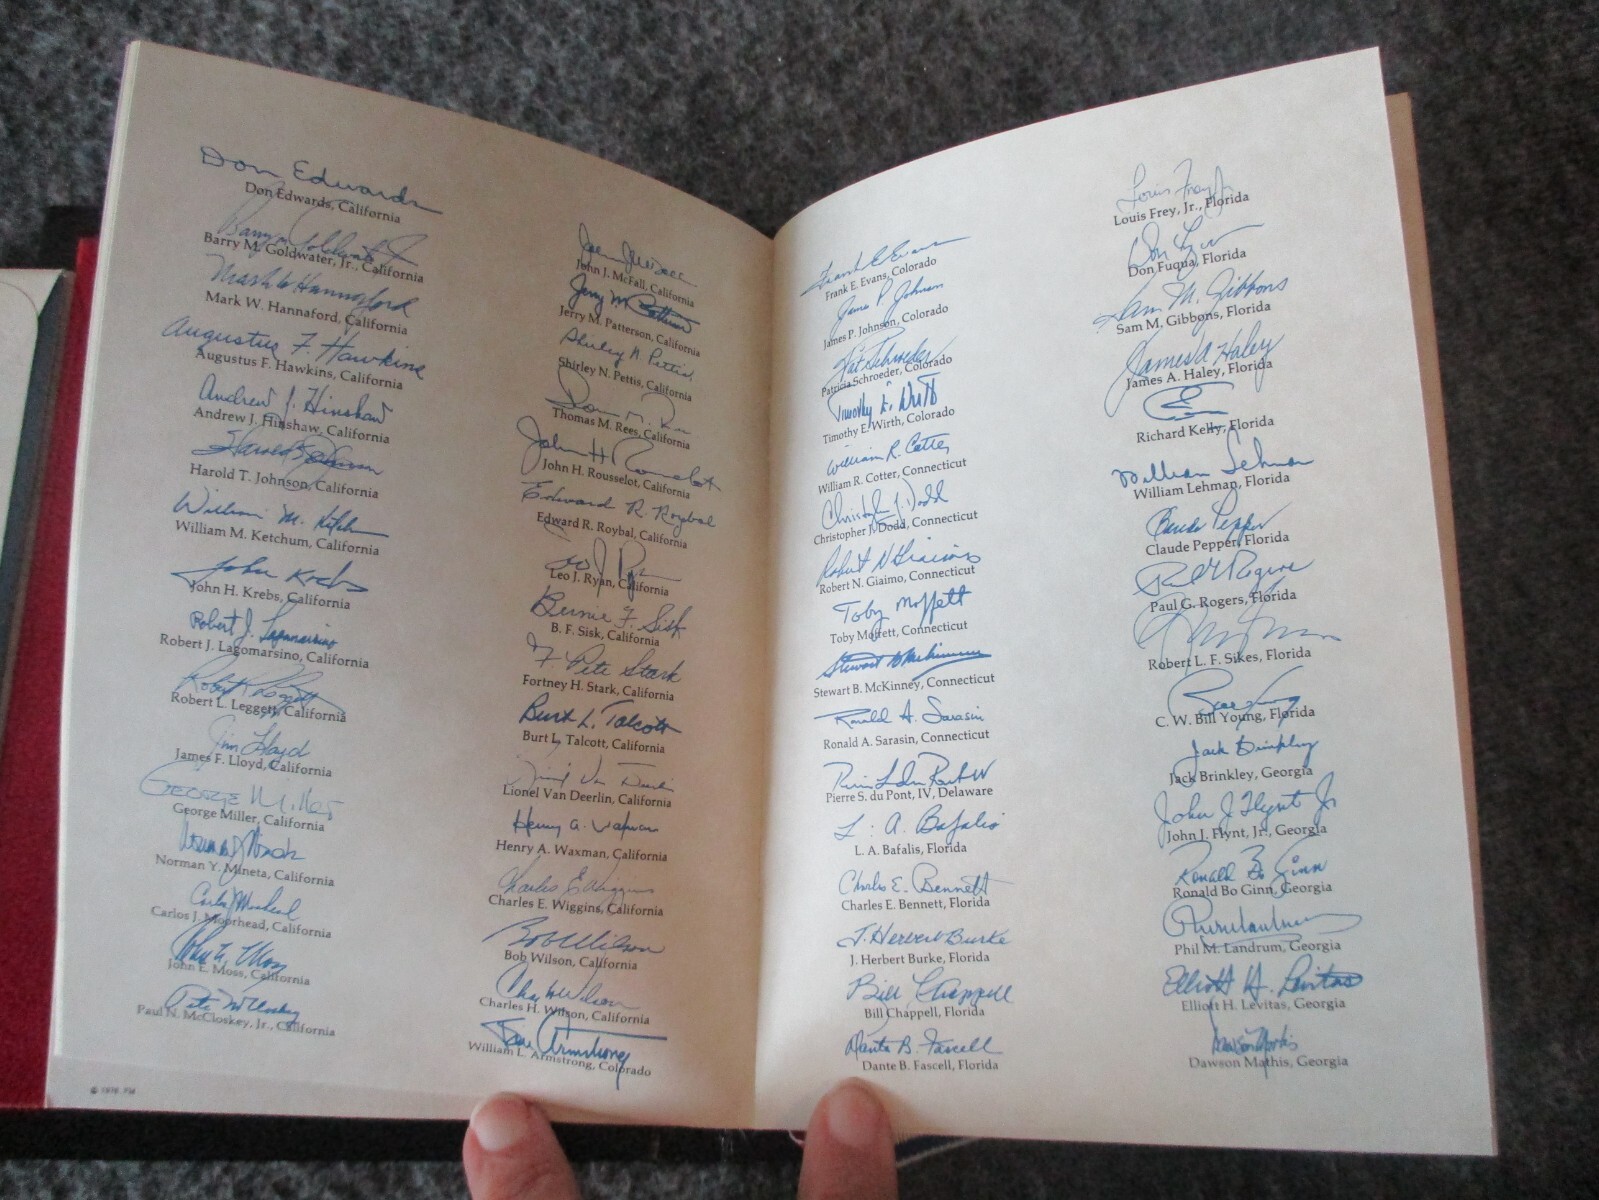 Don Edwards
Don Edwards, California
Barry M. Goldwater, Jr., California
Mark W. Hannaford
Mark W. Hannaford, California
Augustus F. Hawkins
Augustus F. Hawkins, California
Andrew J. Hinshaw
Andrew J. Hinshaw, California
Harold T. Johnson
Harold T. Johnson, California
William M. Ketchum
William M. Ketchum, California
John Krebs
John H. Krebs, California
Robert J. Lagomarsino
Robert J. Lagomarsino, California
Robert L. Leggett
Robert L. Leggett, California
Jim Lloyd
James F. Lloyd, California
George Miller
George Miller, California
Norman Y. Mineta, California
Carlos J. Moorhead
Carlos J. Moorhead, California
John E. Moss
John E. Moss, California
Pete McCloskey
Paul N. McCloskey, Jr., California
© 1976 FM
John J. McFall
John J. McFall, California
Jerry M. Patterson
Jerry M. Patterson, California
Shirley N. Pettis
Shirley N. Pettis, California
Thomas M. Rees, California
John H. Rousselot
John H. Rousselot, California
Edward R. Roybal
Edward R. Roybal, California
Leo J. Ryan
Leo J. Ryan, California
Bernie F. Sisk
B. F. Sisk, California
F. Pete Stark
Fortney H. Stark, California
Burt L. Talcott
Burt L. Talcott, California
Lionel Van Deerlin
Lionel Van Deerlin, California
Henry A. Waxman
Henry A. Waxman, California
Charles E. Wiggins
Charles E. Wiggins, California
Bob Wilson
Bob Wilson, California
Chas H. Wilson
Charles H. Wilson, California
Armstrong
William L. Armstrong, Colorado
Frank E. Evans
Frank E. Evans, Colorado
James P. Johnson
James P. Johnson, Colorado
Pat Schroeder
Patricia Schroeder, Colorado
Timothy E. Wirth
Timothy E. Wirth, Colorado
William R. Cotter
William R. Cotter, Connecticut
Christopher J. Dodd
Christopher J. Dodd, Connecticut
Robert N. Giaimo
Robert N. Giaimo, Connecticut
Toby Moffett
Toby Moffett, Connecticut
Stewart B. McKinney
Stewart B. McKinney, Connecticut
Ronald A. Sarasin
Ronald A. Sarasin, Connecticut
Pierre S. du Pont IV
Pierre S. du Pont, IV, Delaware
L. A. Bafalis
L. A. Bafalis, Florida
Charles E. Bennett
Charles E. Bennett, Florida
J. Herbert Burke
J. Herbert Burke, Florida
Bill Chappell
Bill Chappell, Florida
Dante B. Fascell
Dante B. Fascell, Florida
Louis Frey, Jr.
Louis Frey, Jr., Florida
Don Fuqua
Don Fuqua, Florida
Sam M. Gibbons
Sam M. Gibbons, Florida
James A. Haley
James A. Haley, Florida
Richard Kelly, Florida
William Lehman
William Lehman, Florida
Claude Pepper
Claude Pepper, Florida
Paul G. Rogers
Paul G. Rogers, Florida
Robert L. F. Sikes, Florida
Bill Young
C. W. Bill Young, Florida
Jack Brinkley
Jack Brinkley, Georgia
John J. Flynt Jr
John J. Flynt, Jr., Georgia
Ronald Bo Ginn
Ronald Bo Ginn, Georgia
Phil M. Landrum
Phil M. Landrum, Georgia
Elliott H. Levitas
Elliott H. Levitas, Georgia
Dawson Mathis
Dawson Mathis, Georgia